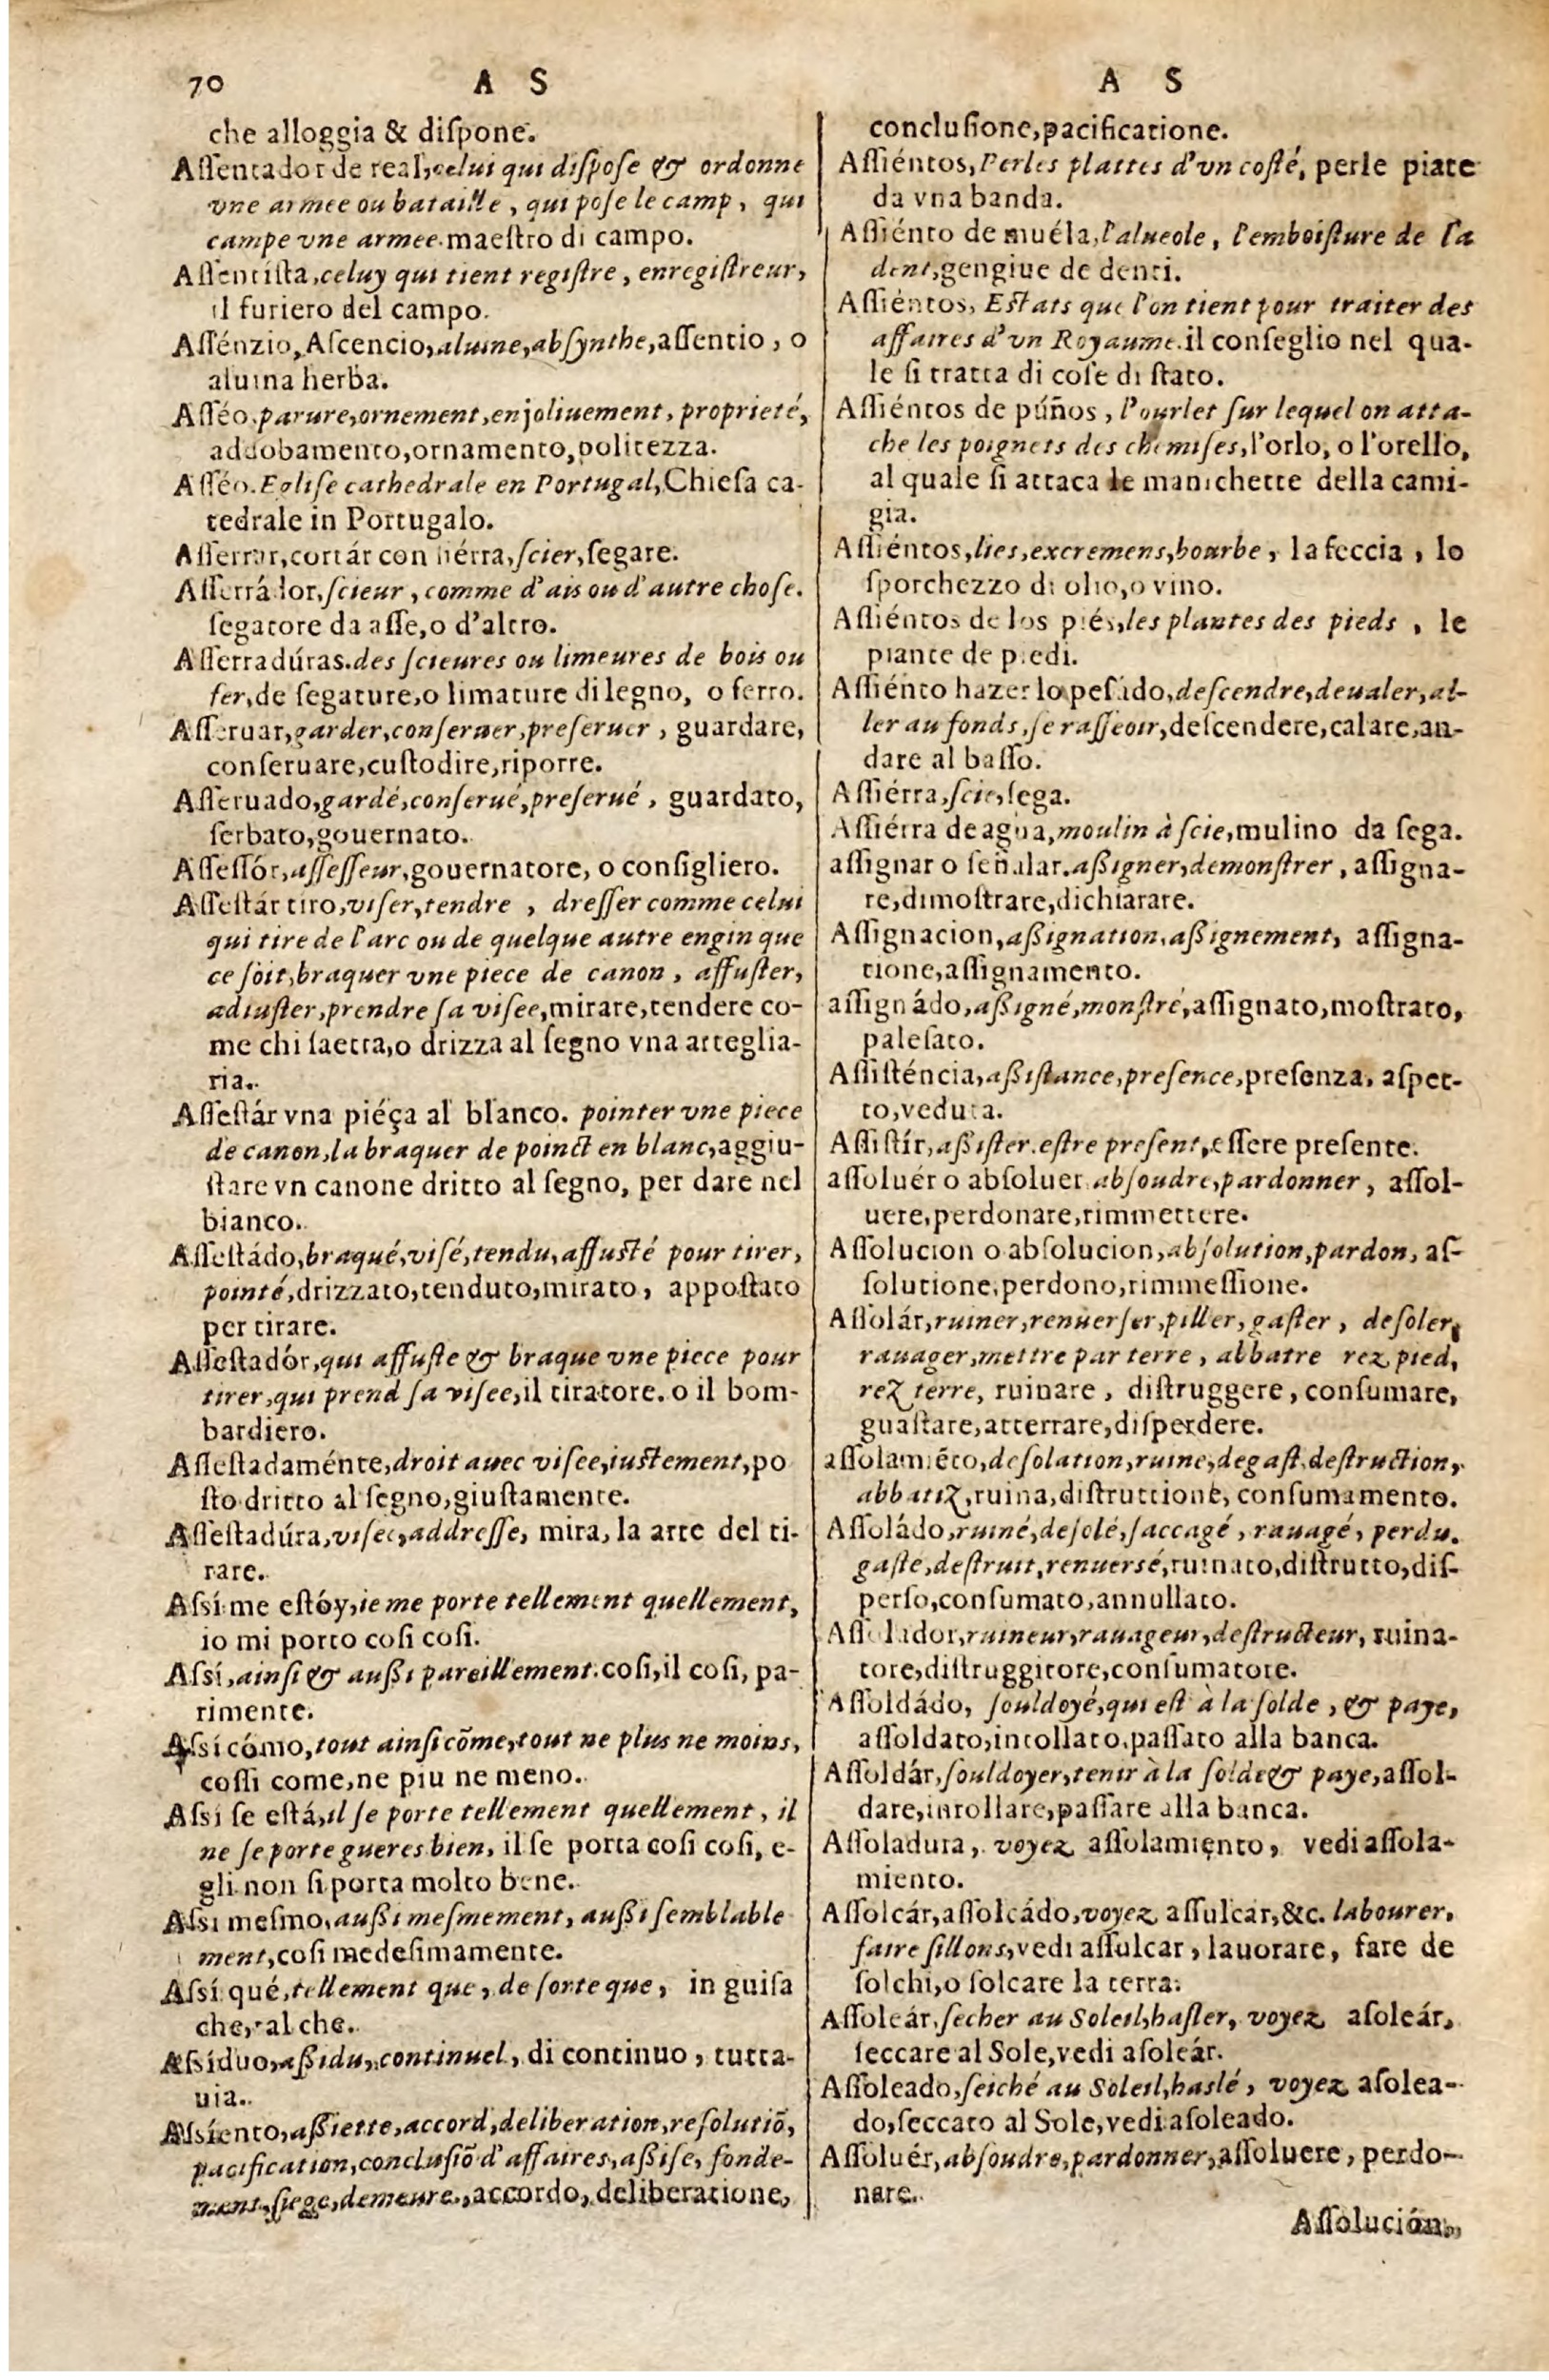 70 A S
che alloggia & diſpone.
Aſſentador de real, celui qui diſpoſe & ordonne
vne armee ou bataille, qui poſe le camp, qui
campe vne armee. maeſtro di campo.
Aſſentiſta, celuy qui tient regiſtre, enregiſtreur,
il furiero del campo.
Aſſénzio, Aſcencio, aluine, abſynthe, aſſentio, o
aluina herba.
Aſſéo, parure, ornement, enjoliuement, proprieté,
addobamento, ornamento, politezza.
Aſſéo. Egliſe cathedrale en Portugal, Chieſa ca-
tedrale in Portugalo.
Aſſerrar, cortár con ſiérra, ſcier, ſegare.
Aſſerrádor, ſcieur, comme d'ais ou d'autre choſe.
ſegatore da aſſe, o d'altro.
Aſſerradúras. des ſcieures ou limeures de bois ou
fer, de ſegature, o limature di legno, o ferro.
Aſſeruar, garder, conſeruer, preſeruer, guardare,
conſeruare, cuſtodire, riporre.
Aſſeruado, gardé, conſerué, preſerué, guardato,
ſerbato, gouernato.
Aſſeſſór, aſſeſſeur, gouernatore, o conſigliero.
Aſſeſtár tiro, viſer, tendre, dreſſer comme celui
qui tire de l'arc ou de quelque autre engin que
ce ſoit, braquer vne piece de canon, affuſter,
adiuſter, prendre ſa viſee, mirare, tendere co-
me chi ſaetta, o drizza al ſegno vna arteglia-
ria.
Aſſeſtár vna piéça al blanco. pointer vne piece
de canon, la braquer de poinct en blanc, aggiu-
ſtare vn canone dritto al ſegno, per dare nel
bianco.
Aſſeſtádo, braqué, viſé, tendu, affuſté pour tirer,
pointé, drizzato, tenduto, mirato, appoſtato
per tirare.
Aſſeſtadór, qui affuſte & braque vne piece pour
tirer, qui prend ſa viſee, il tiratore. o il bom-
bardiero.
Aſſeſtadaménte, droit auec viſee, iuſtement, po
ſto dritto al ſegno, giuſtamente.
Aſſeſtadúra, viſee, addreſſe, mira, la arte del ti-
rare.
Aſsí me eſtóy, ie me porte tellement quellement,
io mi porto coſi coſi.
Aſsí, ainſi & außi pareillement. coſi, il coſi, pa-
rimente.
Aſsi cómo, tout ainſi cõme, tout ne plus ne moins,
coſſi come, ne piu ne meno.
Aſsi ſe eſtá, il ſe porte tellement quellement, il
ne ſe porte gueres bien, il ſe porta coſi coſi, e-
gli non ſi porta molto bene.
Aſsi meſmo, außi meſmement, außi ſemblable
ment, coſi medeſimamente.
Aſsí qué, tellement que, de ſorte que, in guiſa
che, al che.
Aſsíduo, aßidu, continuel, di continuo, tutta-
uia.
Aſsíento, aßiette, accord, deliberation, reſolutiõ,
pacification, concluſiõ d'affaires, aßiſe, fonde-
ment, ſiege, demeure, accordo, deliberatione,
A S
concluſione, pacificatione.
Aſſiéntos, Perles plattes d'vn coſté, perle piate
da vna banda.
Aſſiénto de muéla, l'alueole, l'emboiſture de la
dent, gengiue de denti.
Aſſiéntos, Eſtats que l'on tient pour traiter des
affaires d'vn Royaume. il conſeglio nel qua-
le ſi tratta di coſe di ſtato.
Aſſiéntos de púños, l'ourlet ſur lequel on atta-
che les poignets des chemiſes, l'orlo, o l'orello,
al quale ſi attaca le manichette della cami-
gia.
Aſſiéntos, lies, excremens, bourbe, la feccia, lo
ſporchezzo di olio, o vino.
Aſſiéntos de los piés, les plantes des pieds, le
piante de piedi.
Aſſiénto hazer lo peſádo, deſcendre, deualer, al-
ler au fonds, ſe raſſeoir, deſcendere, calare, an-
dare al baſſo.
Aſſiérra, ſcie, ſega.
Aſſiérra de agua, moulin à ſcie, mulino da ſega.
aſſignar o ſeñalar. aßigner, demonſtrer, aſſigna-
re, dimoſtrare, dichiarare.
Aſſignacion, aßignation, aßignement, aſſigna-
tione, aſſignamento.
aſſignádo, aßigné, monſtré, aſſignato, moſtrato,
paleſato.
Aſſiſténcia, aßiſtance, preſence, preſenza, aſpet-
to, veduta.
Aſſiſtír, aßiſter. eſtre preſent, eſſere preſente.
aſſoluér o abſoluer abſoudre, pardonner, aſſol-
uere, perdonare, rimmettere.
Aſſolucion o abſolucion, abſolution, pardon, aſ-
ſolutione, perdono, rimmeſſione.
Aſſolár, ruiner, renuerſer, piller, gaſter, deſoler,
rauager, mettre par terre, abbatre rez pied,
rez terre, ruinare, diſtruggere, conſumare,
guaſtare, atterrare, diſperdere.
aſſolamiẽto, deſolation, ruine, degaſt, deſtruction,
abbatiz, ruina, diſtruttione, conſumamento.
Aſſoládo, ruiné, deſolé, ſaccagé, rauagé, perdu.
gaſte, deſtruit, renuersé, ruinato, diſtrutto, diſ-
perſo, conſumato, annullato.
Aſſolador, ruineur, rauageur, deſtructeur, ruina-
tore, diſtruggitore, conſumatore.
Aſſoldádo, ſouldoyé, qui eſt à la ſolde, & paye,
aſſoldato, intollato, paſſato alla banca.
Aſſoldár, ſouldoyer, tenir à la ſolde & paye, aſſol-
dare, inrollare, paſſare alla banca.
Aſſoladura, voyez aſſolamiento, vedi aſſola-
miento.
Aſſolcár, aſſolcádo, voyez aſſulcar, &c. labourer,
faire ſillons, vedi aſſulcar, lauorare, fare de
ſolchi, o ſolcare la terra.
Aſſoleár, ſecher au Soleil, haſler, voyez aſoleár,
ſeccare al Sole, vedi aſoleár.
Aſſoleado, ſeiché au Soleil, haslé, voyez aſolea-
do, ſeccato al Sole, vedi aſoleado.
Aſſoluér, abſoudre, pardonner, aſſoluere, perdo-
nare.
Aſſolución,